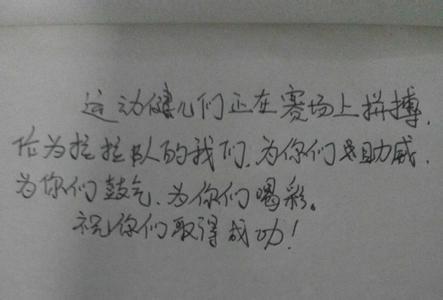 运动健儿们正在赛场上拼搏,
作为拉拉队的我们,为你们来助威,
为你们鼓气,为你们喝彩。
祝你们取得成功!